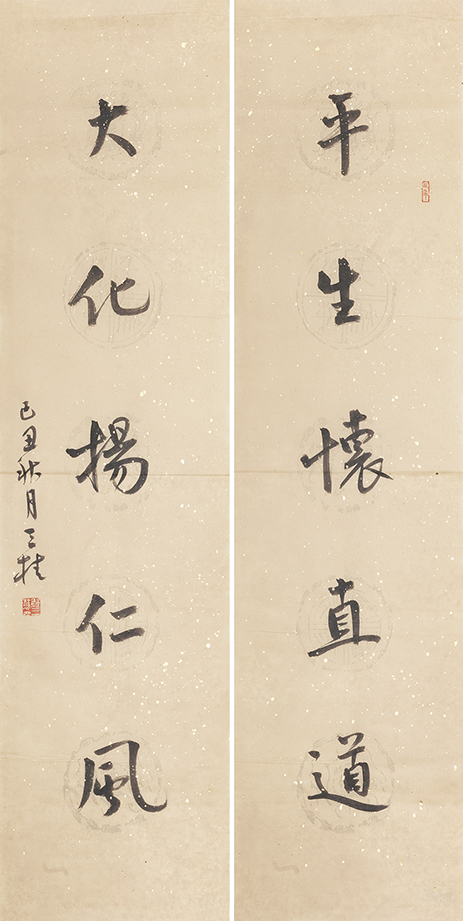 平生懷直道
大化揚仁風
己丑秋月三桂